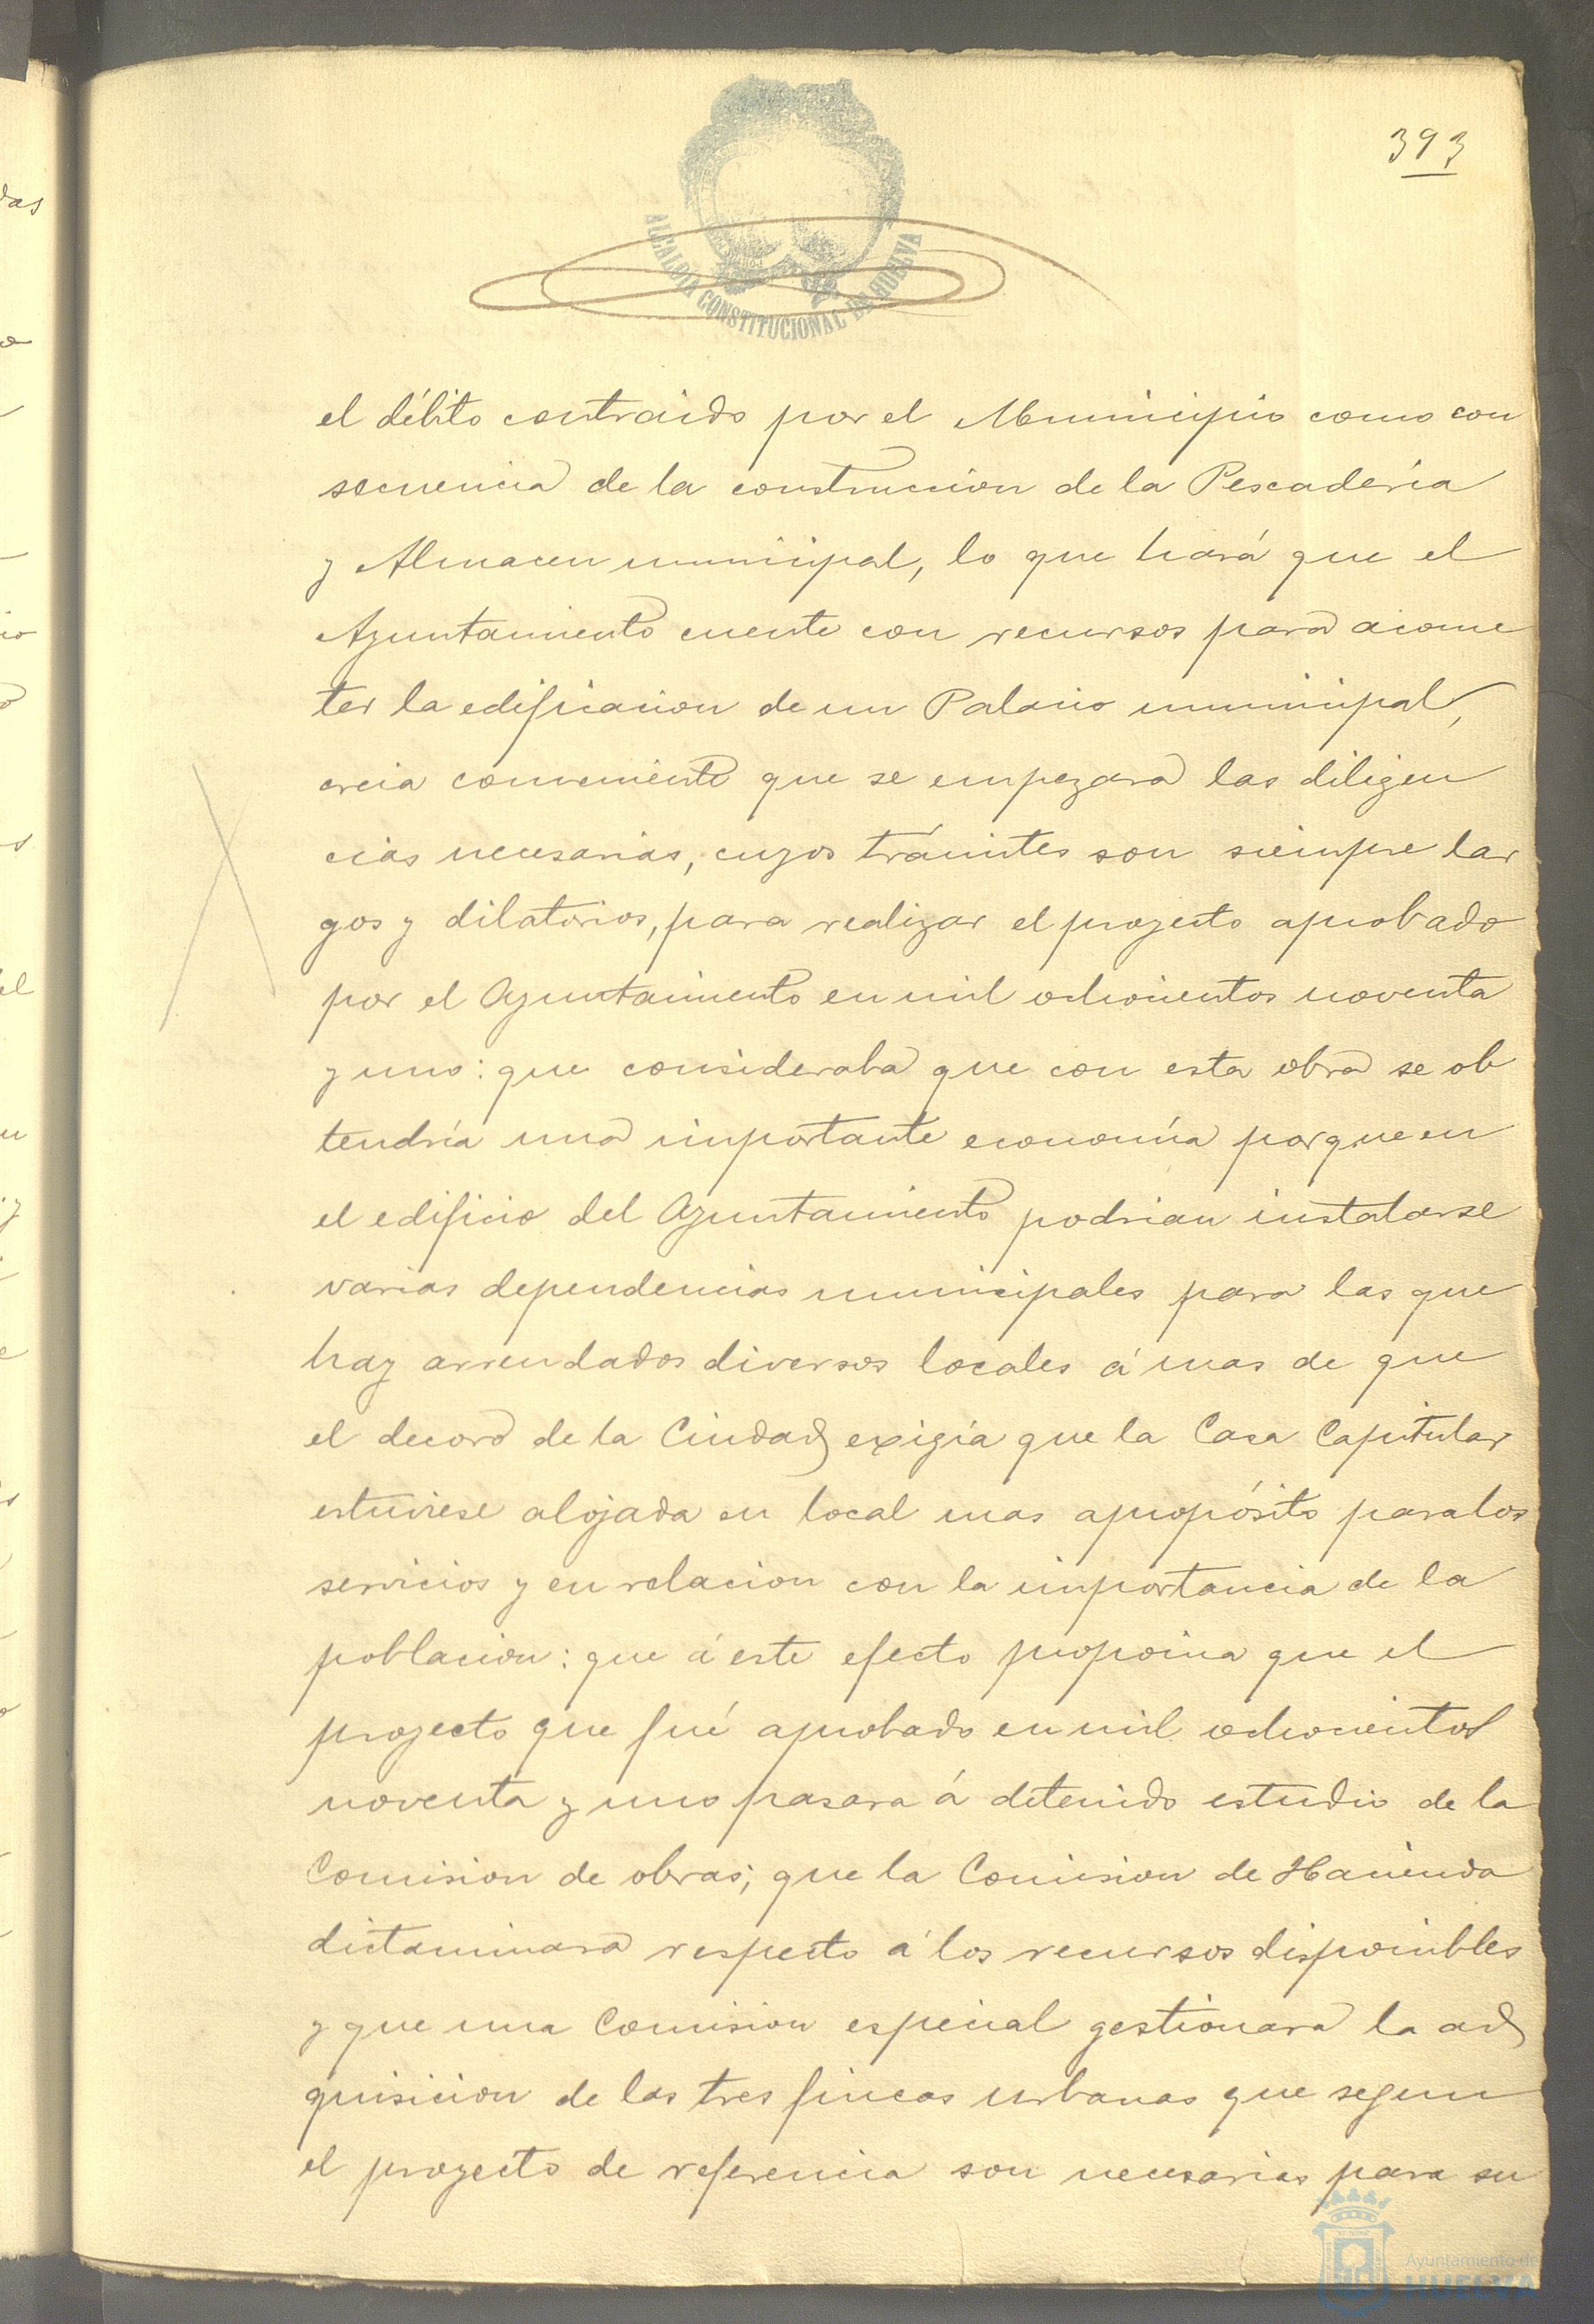 393
ALCALDIA CONSTITUCIONAL DE HUELVA
el débito contraido por el Municipio como con
secuencia de la construccion de la Pescadería
y Almacen municipal, lo que hará que el
Ayuntamiento cuente con recursos para acome
ter la edificacion de un Palacio municipal,
creia conveniente que se empezara las diligen
cias necesarias, cuyos trámites son siempre lar
gos y dilatorios, para realizar el proyecto aprobado
por el Ayuntamiento en mil ochocientos noventa
y uno: que consideraba que con esta obra se ob
tendría una importante economía porque en
el edificio del Ayuntamiento podrian instalarse
varias dependencias municipales para las que
hay arrendados diversos locales á mas de que
el decoro de la Ciudad exigía que la Casa Capitular
estuviese alojada en local mas apropósito para los
servicios y en relacion con la importancia de la
poblacion: que á este efecto proponia que el
proyecto que fué aprobado en mil ochocientos
noventa y uno pasara á detenido estudio de la
Comision de obras; que la Comision de Hacienda
dictaminara respecto á los recursos disponibles
y que una Comision especial gestionara la ad
quisicion de las tres fincas urbanas que segun
el proyecto de referencia son necesarias para su
Ayuntamiento de
HUELVA